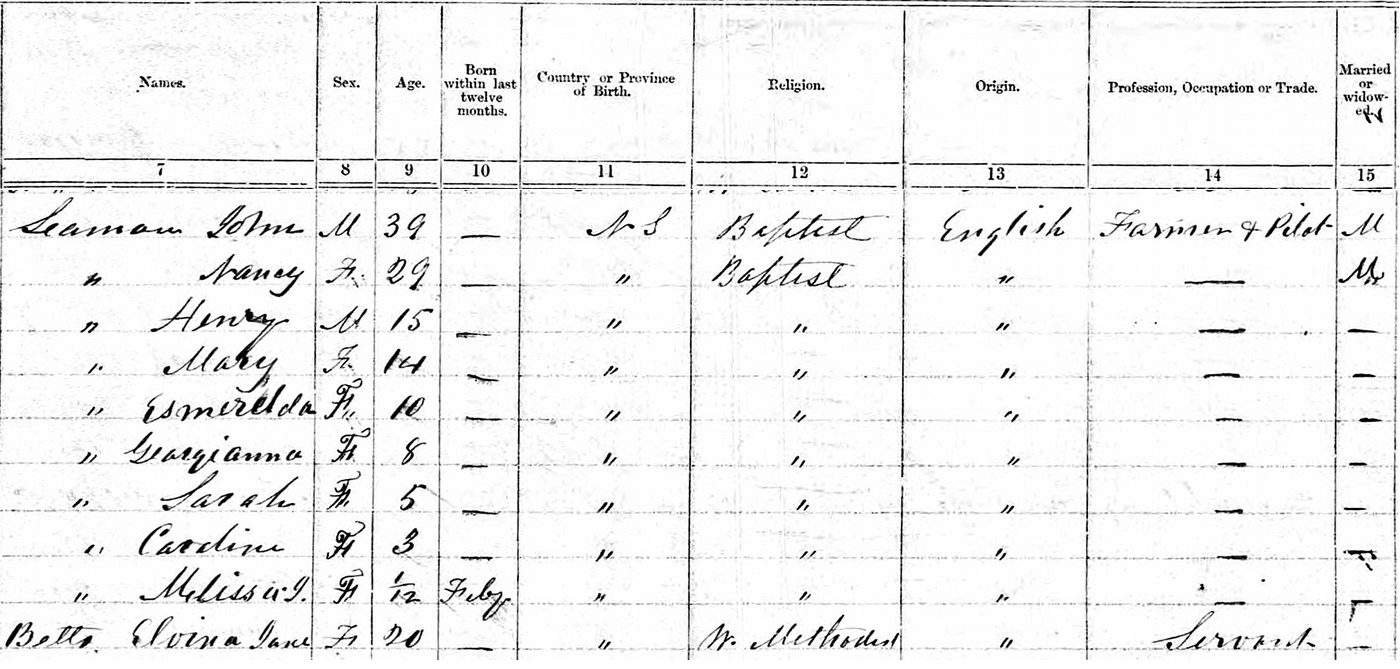 Names. Sex. Age. Born within last twelve months. Country or Province of Birth. Religion. Origin. Profession, Occupation or Trade. Married or widow-ed.
7 8 9 10 11 12 13 14 15
Seaman John M 39 — N S Baptist English Farmer & Pilot M
" Nancy F. 29 — " Baptist " — M
" Henry M 15 — " " " — —
" Mary F. 14 — " " " — —
" Esmerelda F. 10 — " " " — —
" Georgianna F 8 — " " " — —
" Sarah F. 5 — " " " — —
" Caroline F 3 — " " " — —
" Melissa J. F 1/12 Feby " " " — —
Betts Elvina Jane F 20 — " W. Methodist " Servant —